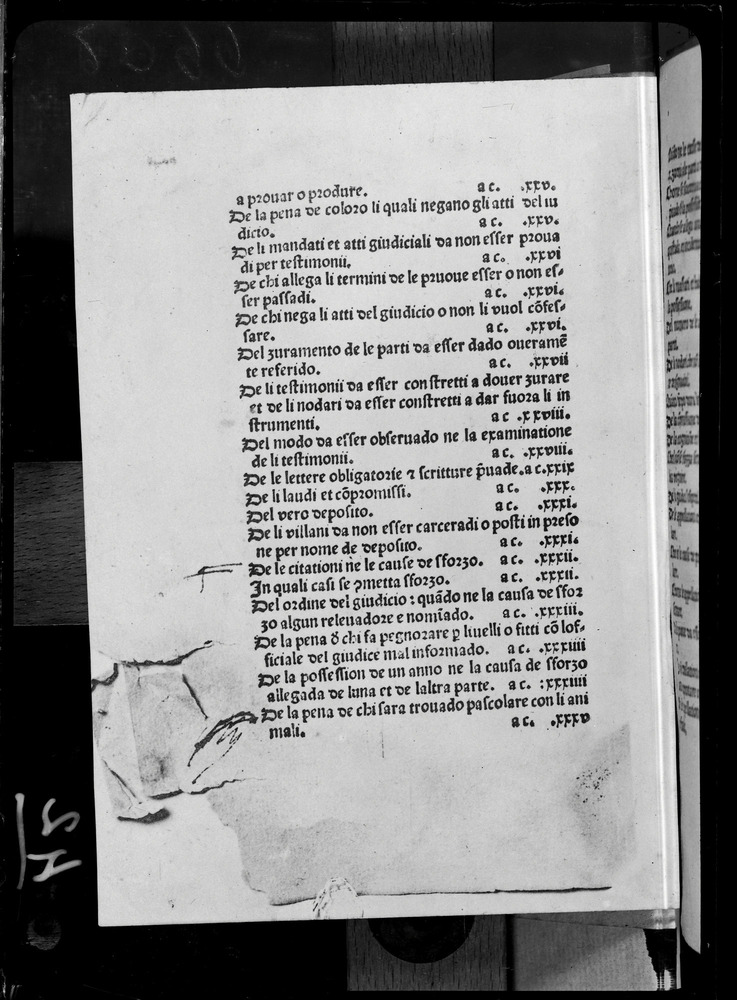 a prouar o produre. a c. .xxv.
De la pena de coloro li quali negano gli atti del iu
dicio. a c. .xxv.
De li mandati et atti giudiciali da non esser proua
di per testimonii. a c. .xxvi
De chi allega li termini de le pruoue esser o non es⸗
ser passadi. a c. .xxvi.
De chi nega li atti del giudicio o non li vuol cōfes⸗
sare. a c. .xxvi.
Del zuramento de le parti da esser dado oueramē
te referido. a c. .xxvii
De li testimonii da esser constretti a douer zurare
et de li nodari da esser constretti a dar fuora li in
strumenti. a c .xxviii.
Del modo da esser obseruado ne la examinatione
de li testimonii. a c. .xxviii.
De le lettere obligatorie ⁊ scritture p̄uade. a c. xxix
De li laudi et cōpromissi. a c. .xxx.
Del vero deposito. a c. .xxxi.
De li villani da non esser carceradi o posti in preso
ne per nome de deposito. a c. .xxxi.
De le citationi ne le cause de sforzo. a c. .xxxii.
In quali casi se ꝓmetta sforzo. a c. .xxxii.
Del ordine del giudicio : quādo ne la causa de sfor
zo algun releuadore e nomīado. a c. .xxxiii.
De la pena d̄ chi fa pegnorare ꝑ liuelli o fitti cō lof⸗
ficiale del giudice mal informado. a c. .xxxiiii
De la possession de un anno ne la causa de sforzo
allegada de luna et de laltra parte. a c. :xxxiiii
De la pena de chi sara trouado pascolare con li ani
mali. a c. .xxxv